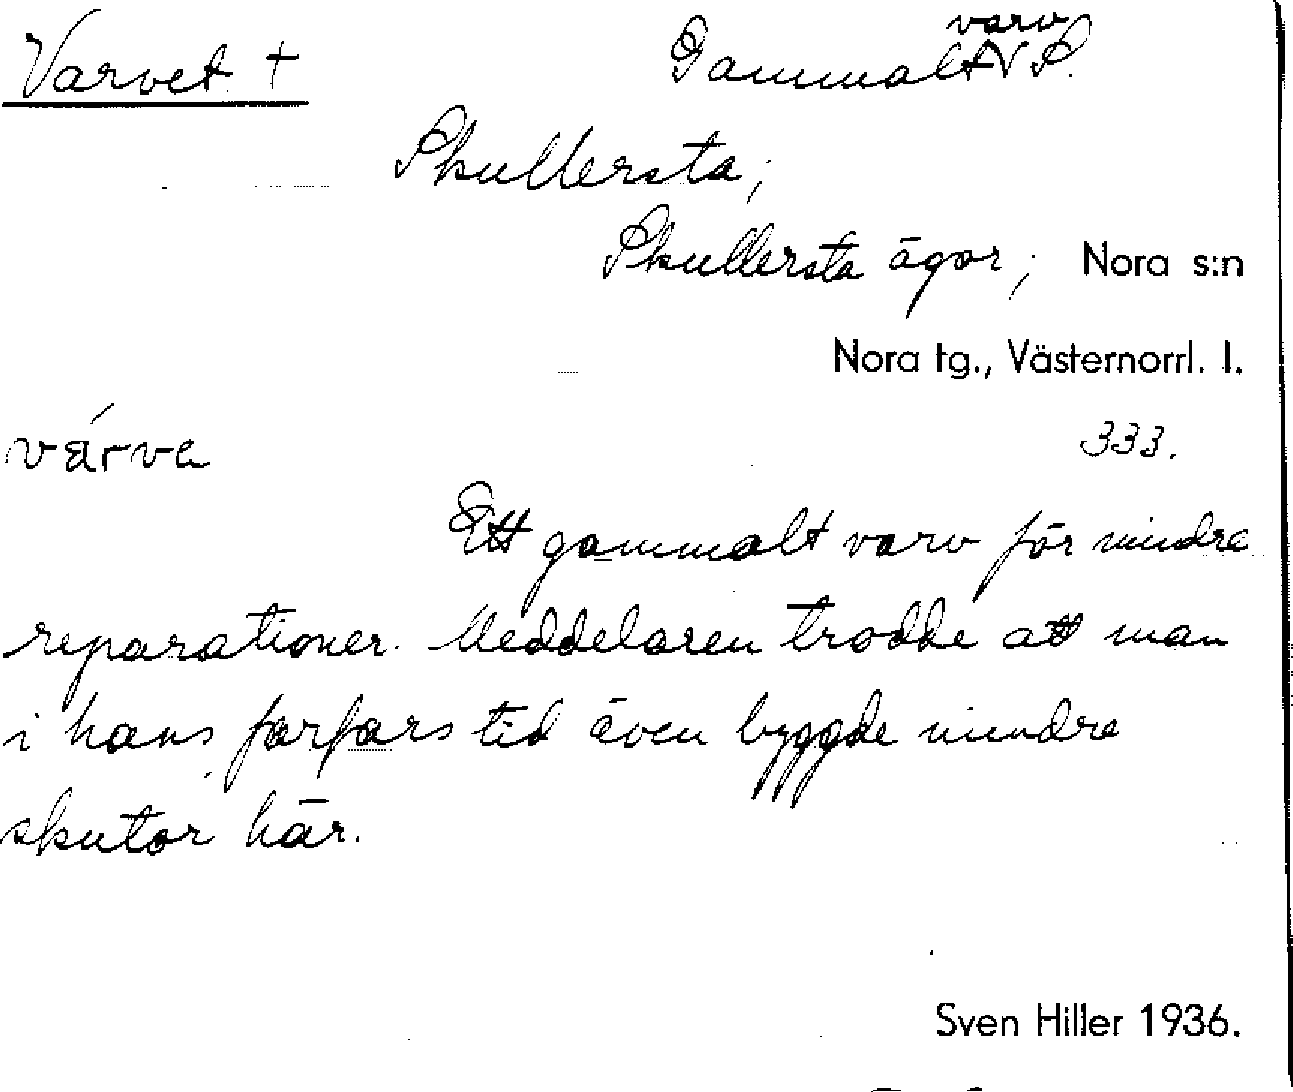 Varvet +
Gammalt varv V S.
Skullersta;
Skullersta ägor; Nora s:n
Nora tg., Västernorrl. l.
várva
333.
Ett gammalt varv för mindre
reparationer. Meddelaren trodde att man
i hans farfars tid även byggde mindre
skutor här.
Sven Hiller 1936.